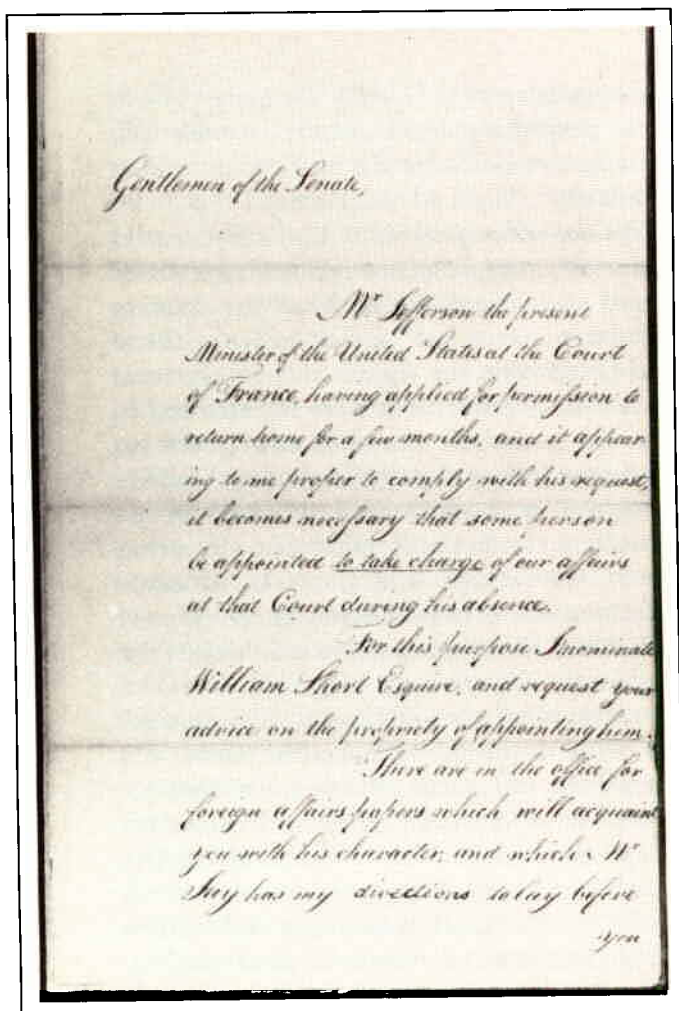 Gentlemen of the Senate,
Mr Jefferson the present
Minister of the United States at the Court
of France, having applied for permission to
return home for a few months, and it appear-
ing to me proper to comply with his request,
it becomes necessary that some person
be appointed to take charge of our affairs
at that Court during his absence.
For this purpose I nominate
William Short Esquire, and request your
advice on the propriety of appointing him.
There are in the office for
foreign affairs papers which will acquaint
you with his character, and which Mr
Jay has my directions to lay before
you